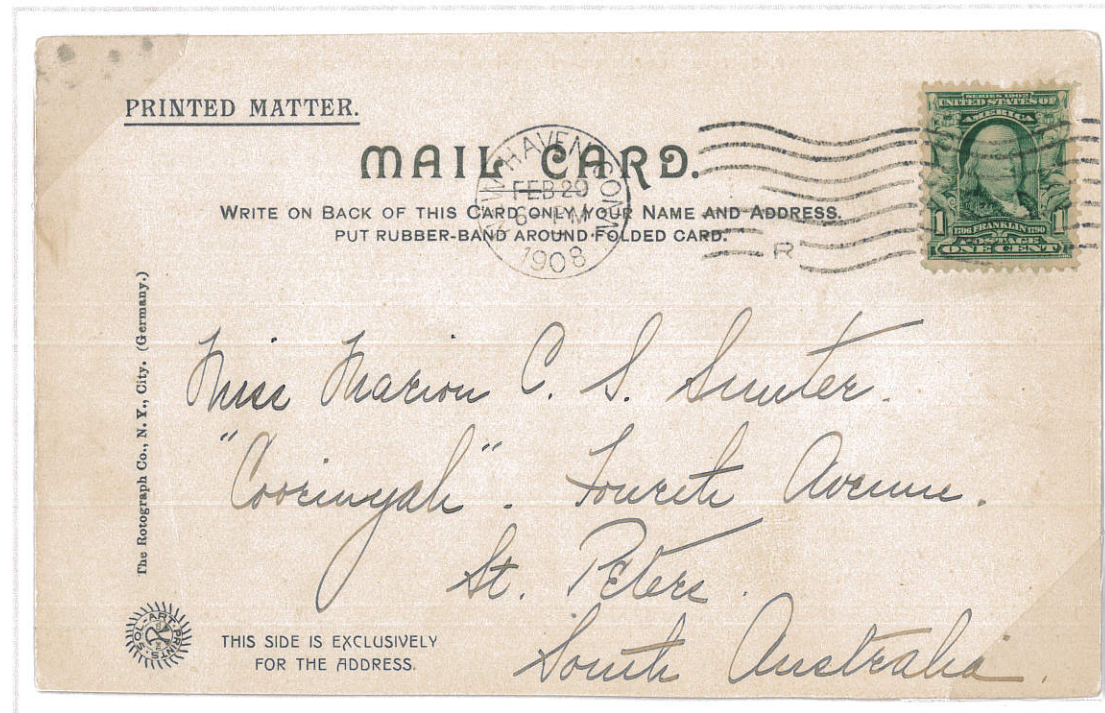 PRINTED MATTER.
MAIL CARD.
WRITE ON BACK OF THIS CARD ONLY YOUR NAME AND ADDRESS.
PUT RUBBER-BAND AROUND FOLDED CARD.
NEW HAVEN CONN.
FEB 29
6 M
1908
R
SERIES 1902
UNITED STATES OF
AMERICA
1 1
1706 FRANKLIN 1790
POSTAGE
ONE CENT
The Rotograph Co., N. Y., City. (Germany.)
Miss Marion C. S. Sunter.
"Cooringah". Fourth Avenue.
St. Peters.
South Australia.
SOL-ART-PRINTS
THIS SIDE IS EXCLUSIVELY
FOR THE ADDRESS.